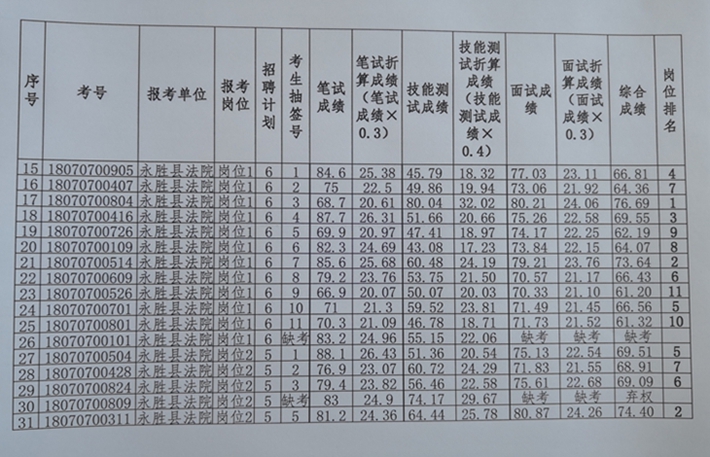 序号 考号 报考单位 报考岗位 招聘计划 考生抽签号 笔试成绩 笔试折算成绩（笔试成绩×0.3） 技能测试成绩 技能测试折算成绩（技能测试成绩×0.4） 面试成绩 面试折算成绩（面试成绩×0.3） 综合成绩 岗位排名
15 18070700905 永胜县法院 岗位1 6 1 84.6 25.38 45.79 18.32 77.03 23.11 66.81 4
16 18070700407 永胜县法院 岗位1 6 2 75 22.5 49.86 19.94 73.06 21.92 64.36 7
17 18070700804 永胜县法院 岗位1 6 3 68.7 20.61 80.04 32.02 80.21 24.06 76.69 1
18 18070700416 永胜县法院 岗位1 6 4 87.7 26.31 51.66 20.66 75.26 22.58 69.55 3
19 18070700726 永胜县法院 岗位1 6 5 69.9 20.97 47.41 18.97 74.17 22.25 62.19 9
20 18070700109 永胜县法院 岗位1 6 6 82.3 24.69 43.08 17.23 73.84 22.15 64.07 8
21 18070700514 永胜县法院 岗位1 6 7 85.6 25.68 60.48 24.19 79.21 23.76 73.64 2
22 18070700609 永胜县法院 岗位1 6 8 79.2 23.76 53.75 21.50 70.57 21.17 66.43 6
23 18070700526 永胜县法院 岗位1 6 9 66.9 20.07 50.07 20.03 70.33 21.10 61.20 11
24 18070700701 永胜县法院 岗位1 6 10 71 21.3 59.52 23.81 71.49 21.45 66.56 5
25 18070700801 永胜县法院 岗位1 6 11 70.3 21.09 46.78 18.71 71.73 21.52 61.32 10
26 18070700101 永胜县法院 岗位1 6 缺考 83.2 24.96 55.15 22.06 缺考 缺考 缺考
27 18070700504 永胜县法院 岗位2 5 1 88.1 26.43 51.36 20.54 75.13 22.54 69.51 5
28 18070700428 永胜县法院 岗位2 5 2 76.9 23.07 60.72 24.29 71.83 21.55 68.91 7
29 18070700824 永胜县法院 岗位2 5 3 79.4 23.82 56.46 22.58 75.61 22.68 69.09 6
30 18070700809 永胜县法院 岗位2 5 缺考 83 24.9 74.17 29.67 缺考 缺考 弃权
31 18070700311 永胜县法院 岗位2 5 5 81.2 24.36 64.44 25.78 80.87 24.26 74.40 2